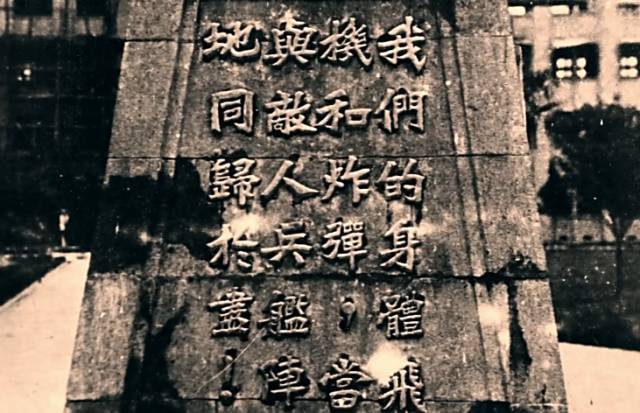 我們的身體飛
機和炸彈，當
與敵人兵艦陣
地同歸於盡！